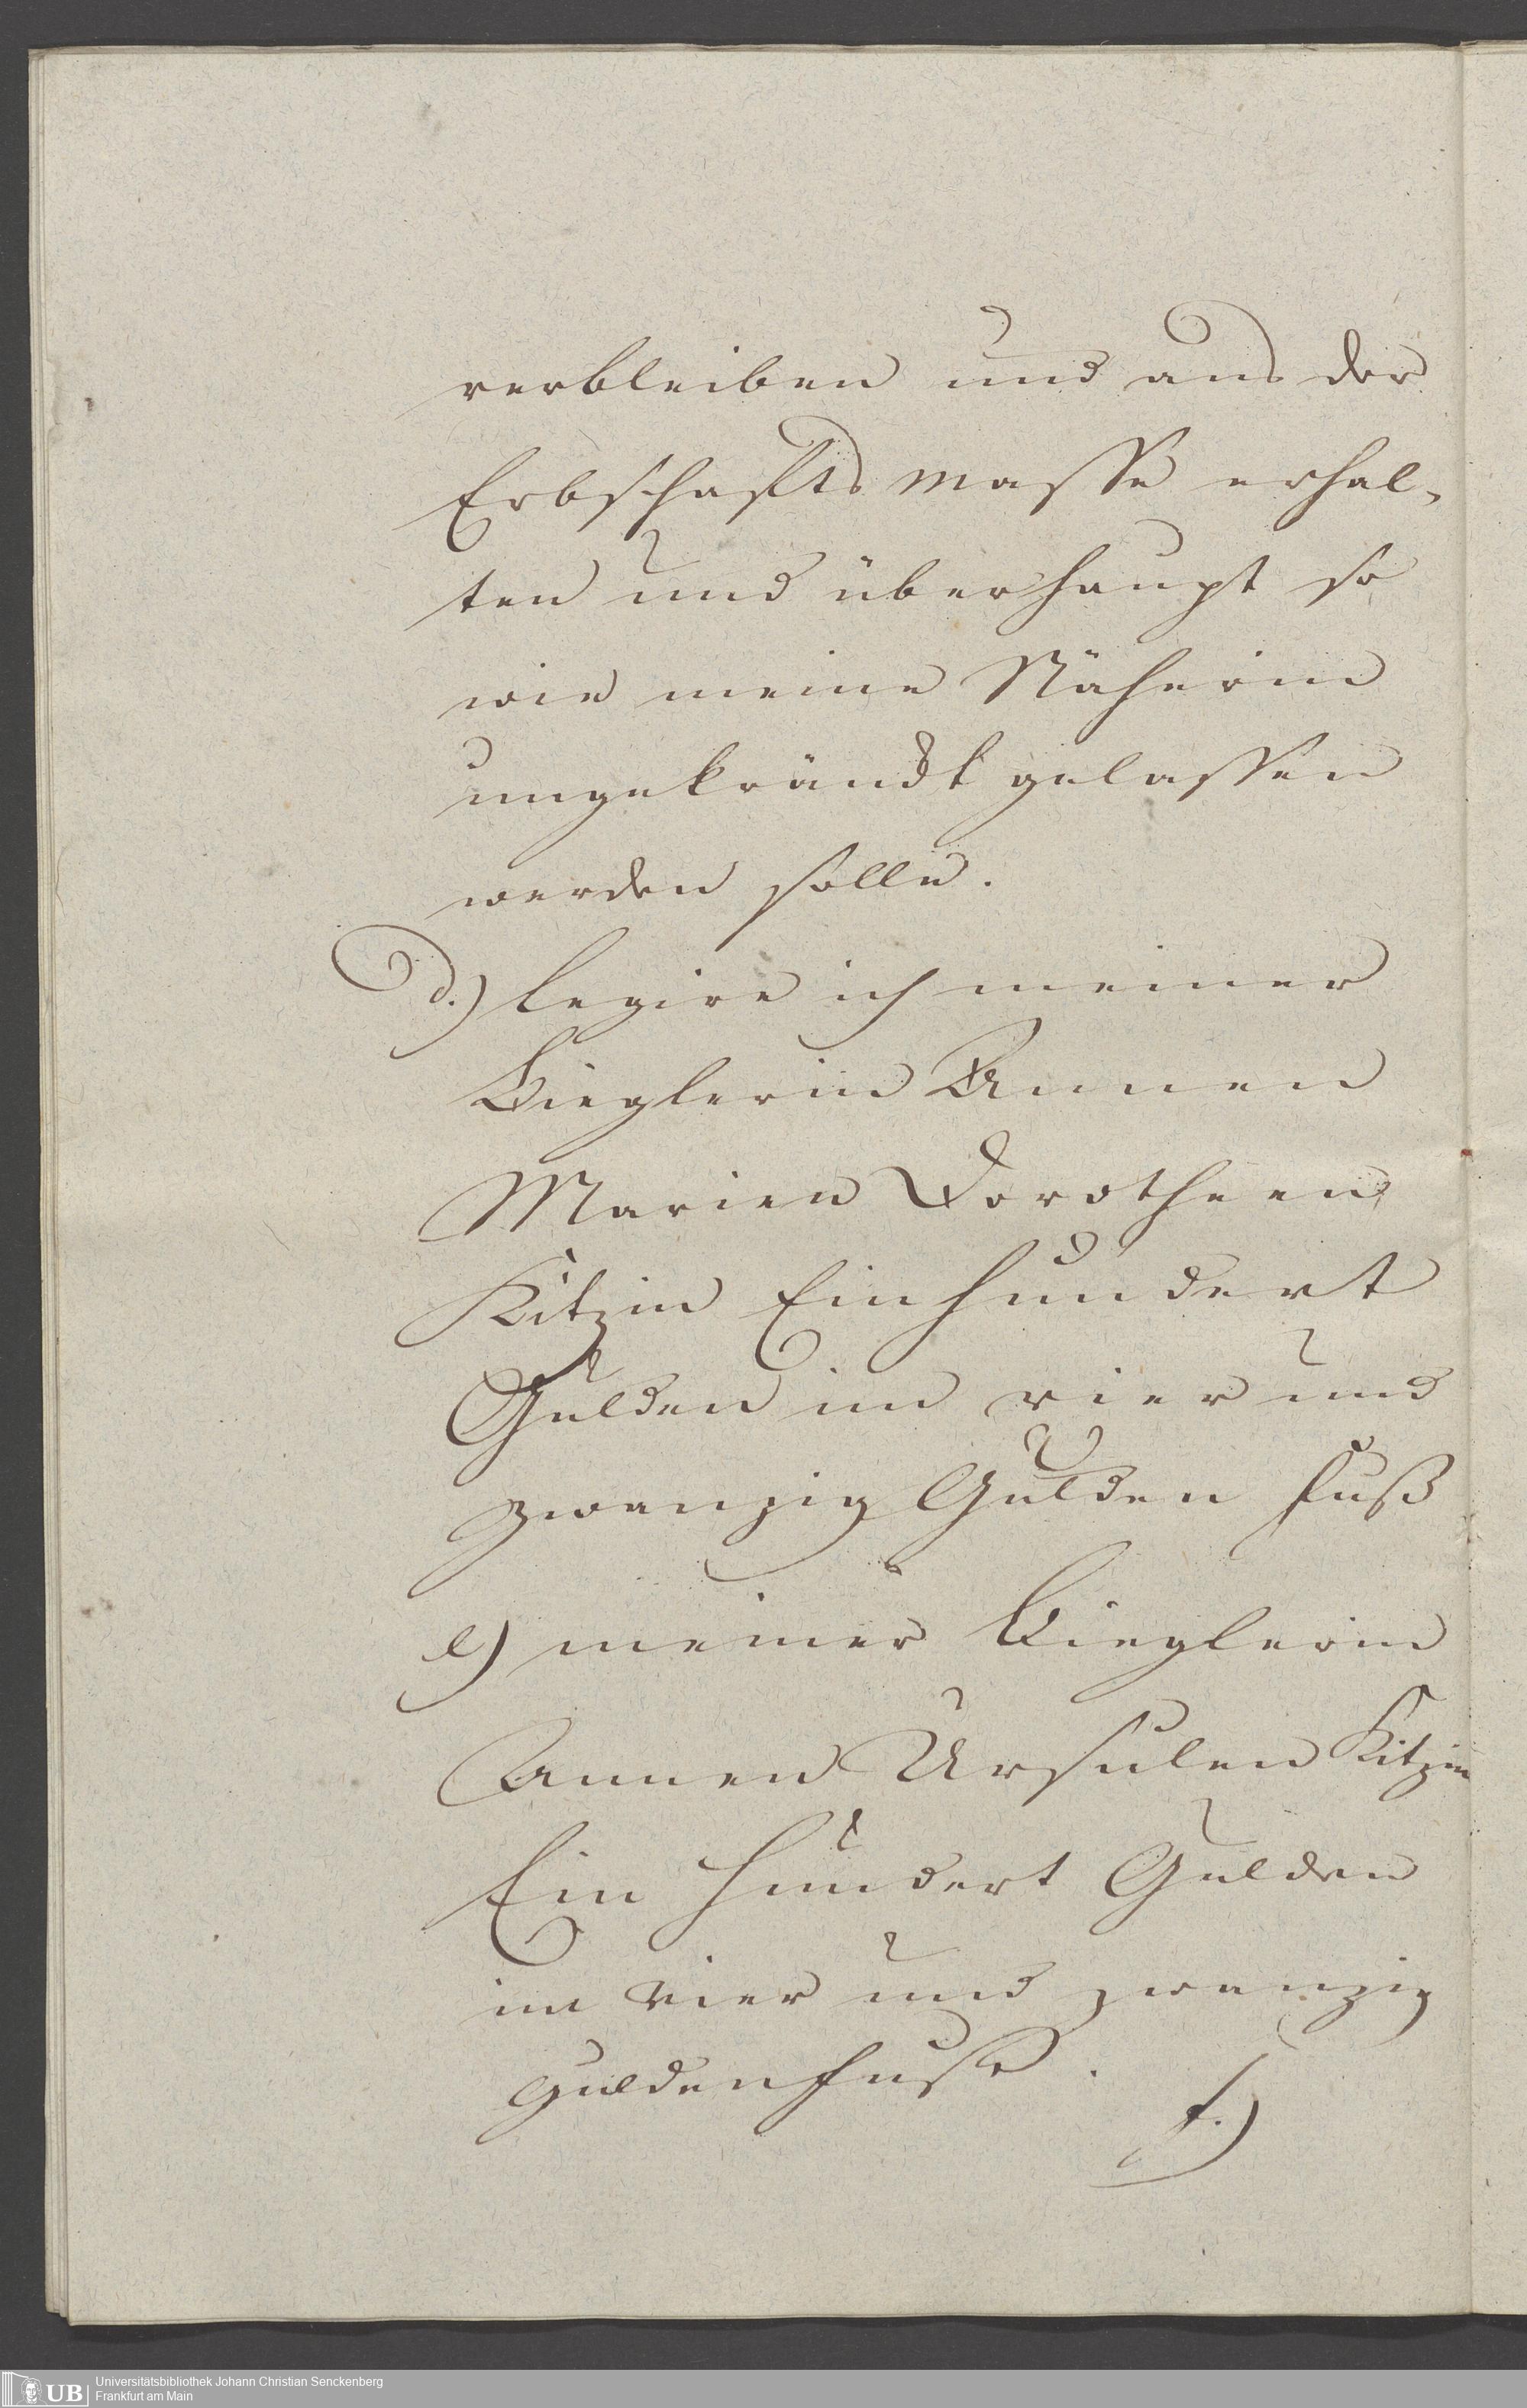 verbleiben und aus der
Erbschafts masse erhal-
ten und überhaupt so
wie meine Näherin
ungekränckt gelassen
werden solle.
d.) legire ich meiner
Bieglerin Annen
Marien Dorotheen
Kitzin Einhundert
Gulden im vier und
zwanzig Gulden fuß
e) meiner Bieglerin
Annen Ursulen Kitzin
Ein hundert Gulden
im vier und zwanzig
Guldenfuße.
f.)
UB Universitätsbibliothek Johann Christian Senckenberg
Frankfurt am Main